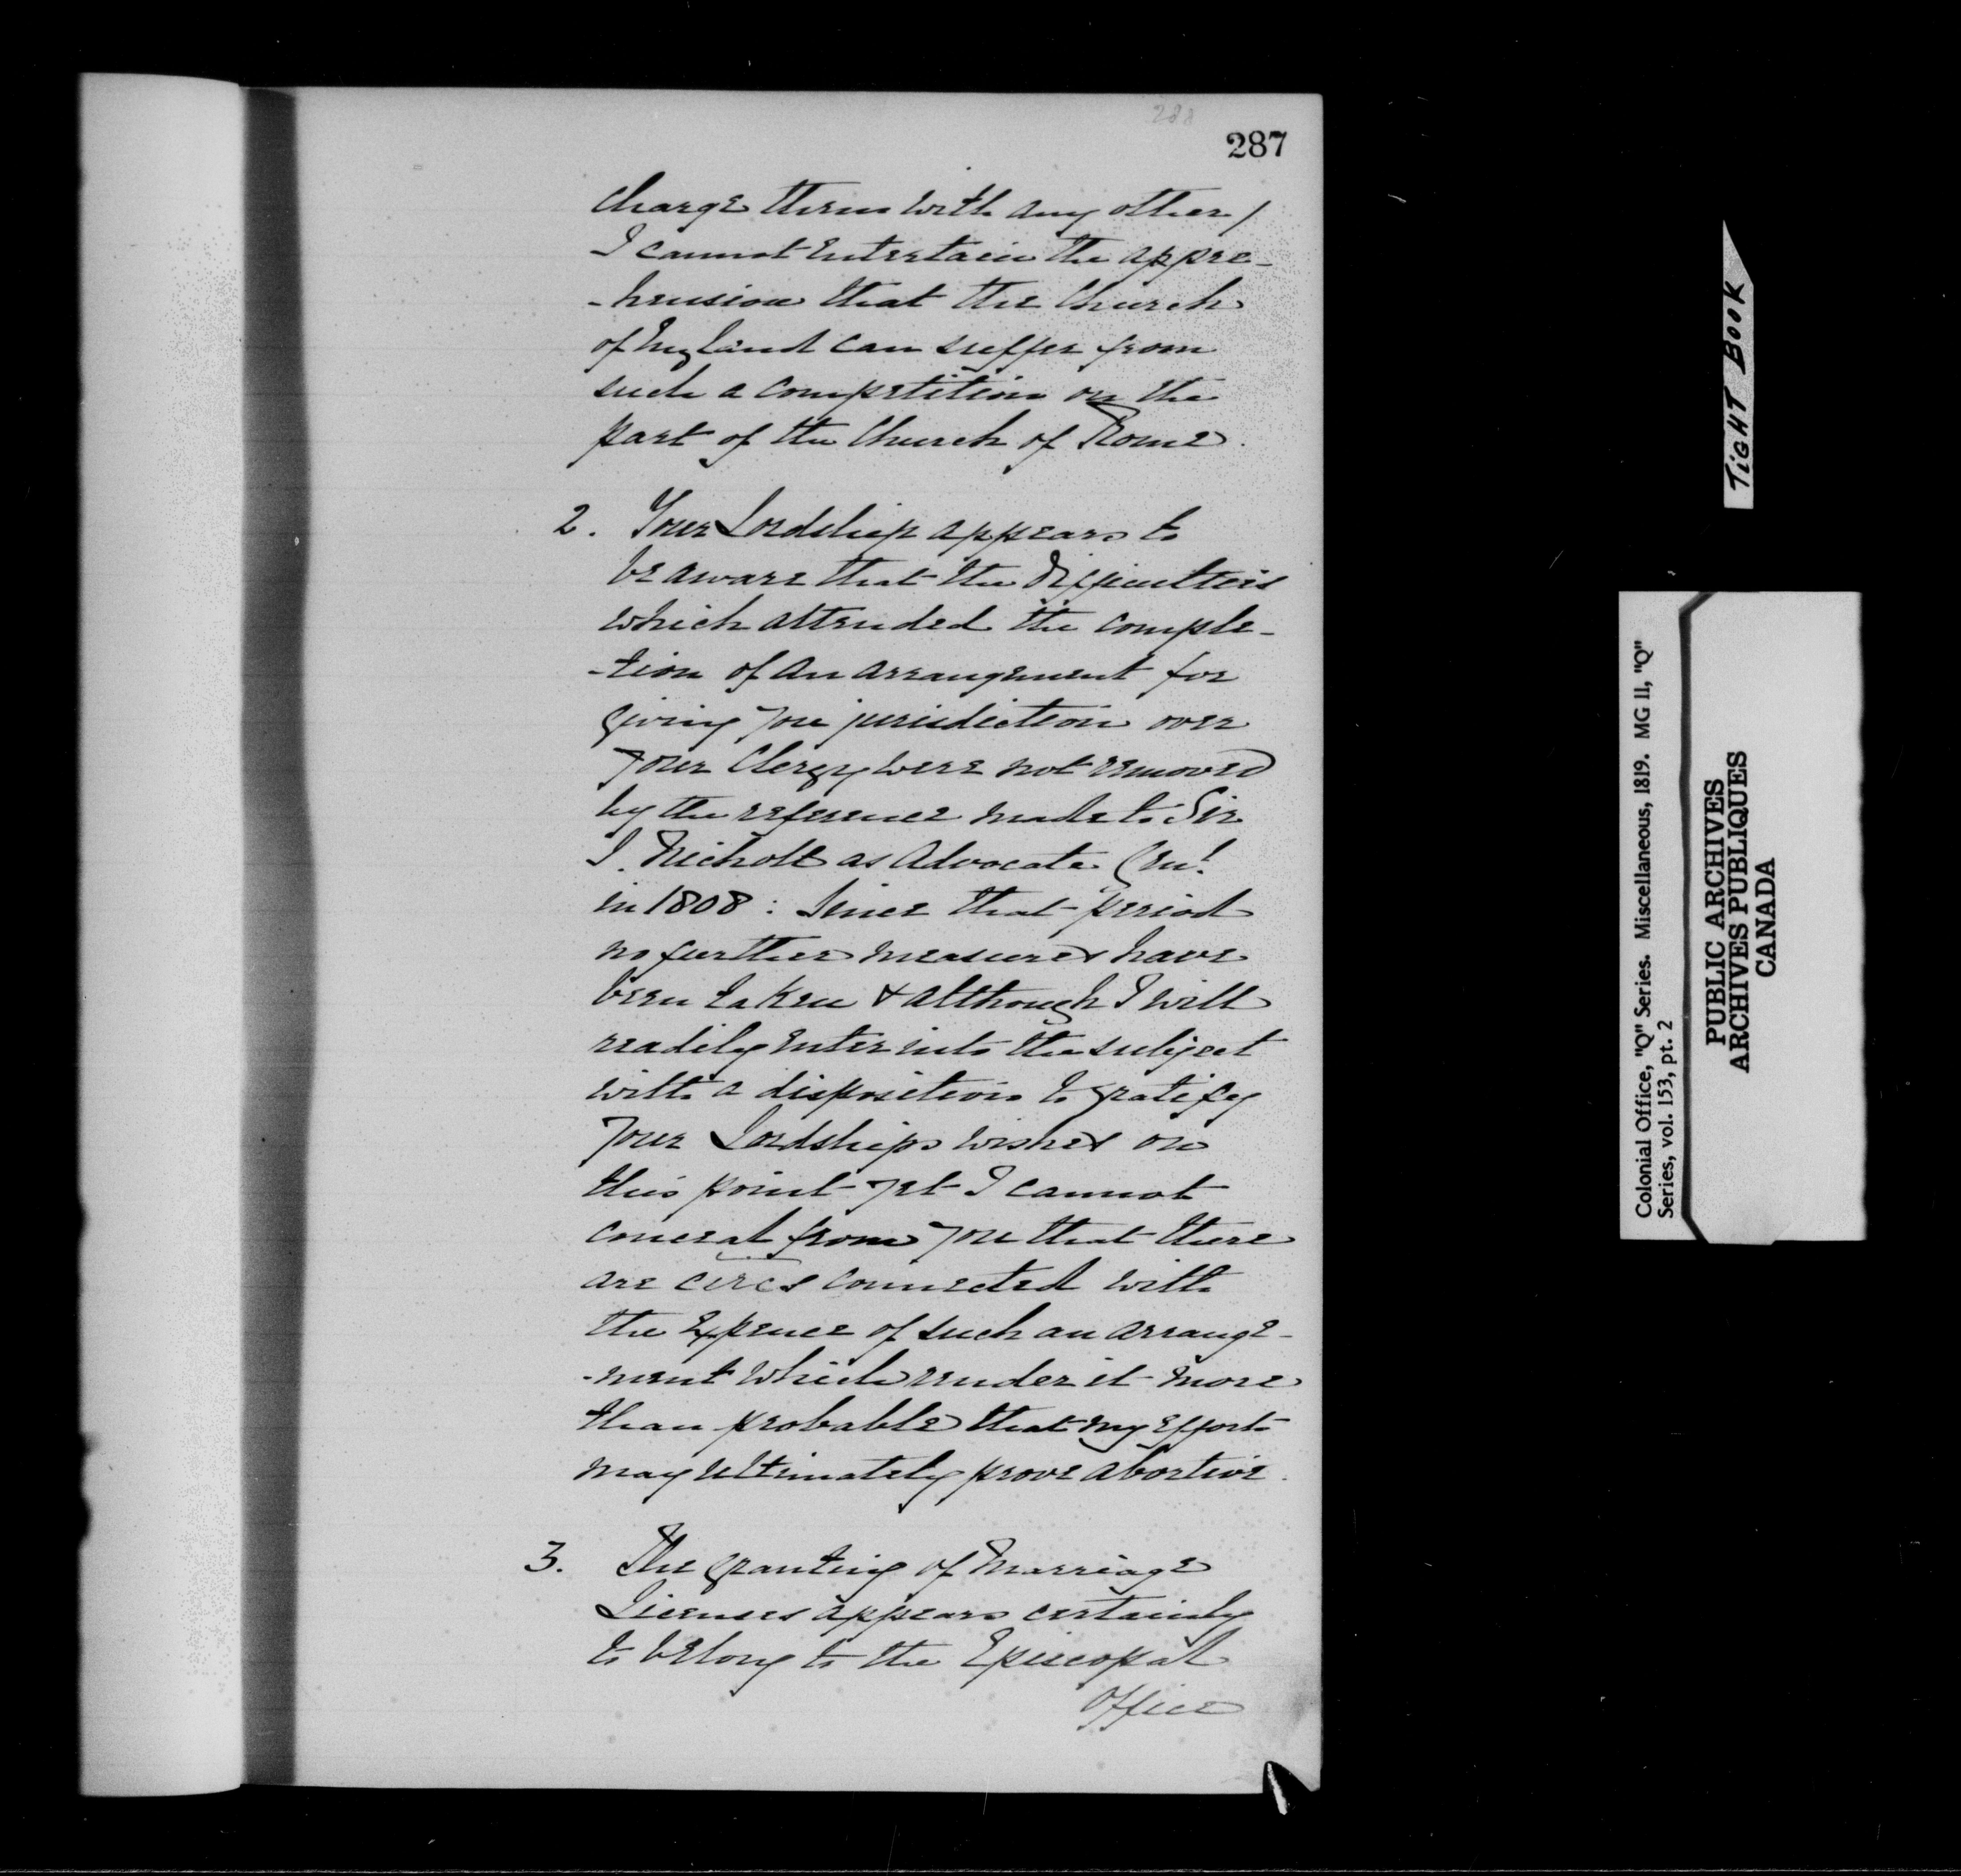 288
287
charge them with any other /
I cannot entertain the appre-
-hension that the Church
of England can suffer from
such a competition on the
part of the Church of Rome.
2. Your Lordship appears to
be aware that the Difficulties
which attended the comple-
-tion of an arrangement for
giving you jurisdiction over
your Clergy were not removed
by the reference made to Sir
J. Nicholl as Advocate Genl.
in 1808 : Since that period
no further measures have
been taken & although I will
readily enter into the subject
with a disposition to gratify
your Lordships wishes on
this point yet I cannot
conceal from you that there
are circs connected with
the Expence of such an arrange-
-ment which render it more
than probable that my effort
may ultimately prove abortive.
3. The granting of Marriage
Licenses appears certainly
to belong to the Episcopal
Office
TIGHT BOOK
Colonial Office, "Q" Series. Miscellaneous, 1819. MG 11, "Q"
Series, vol. 153, pt. 2
PUBLIC ARCHIVES
ARCHIVES PUBLIQUES
CANADA